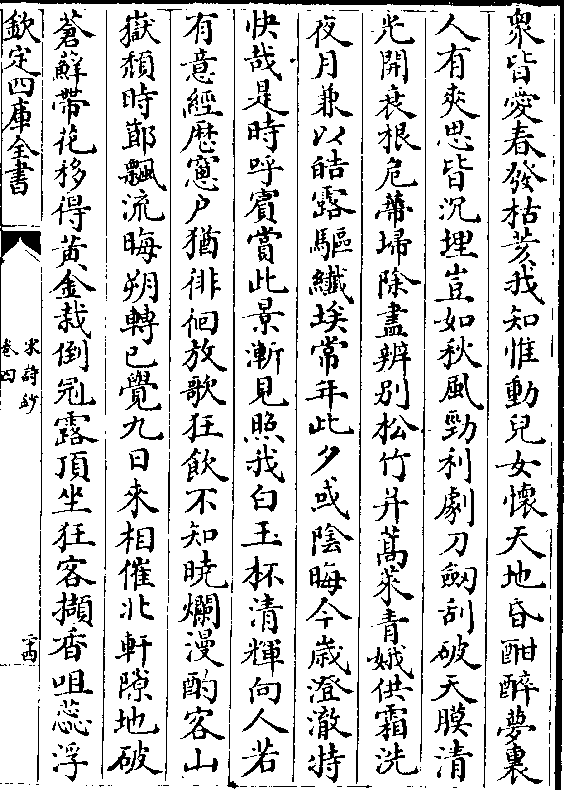 衆皆愛春發枯荄我知惟動兒女懷天地昏酣醉夢裏
人有爽思皆沉埋豈如秋風勁利劇刀劒刮破天膜清
光開衰根危蔕埽除盡辨别松竹并蒿萊青娥供霜洗
夜月兼以皓露驅纎埃常年此夕或陰晦今歲澄澈特
快哉是時呼賓賞此景漸見照我白玉杯清輝向人若
有意經歴窻戸猶徘徊放歌狂飲不知曉爛漫酌客山
嶽頽時節飄流晦朔轉已覺九日來相催北軒隙地破
蒼蘚帶花移得黄金栽倒冠露頂坐狂客擷香咀蕊浮
欽定四庫全書
宋詩鈔
卷四
二十四